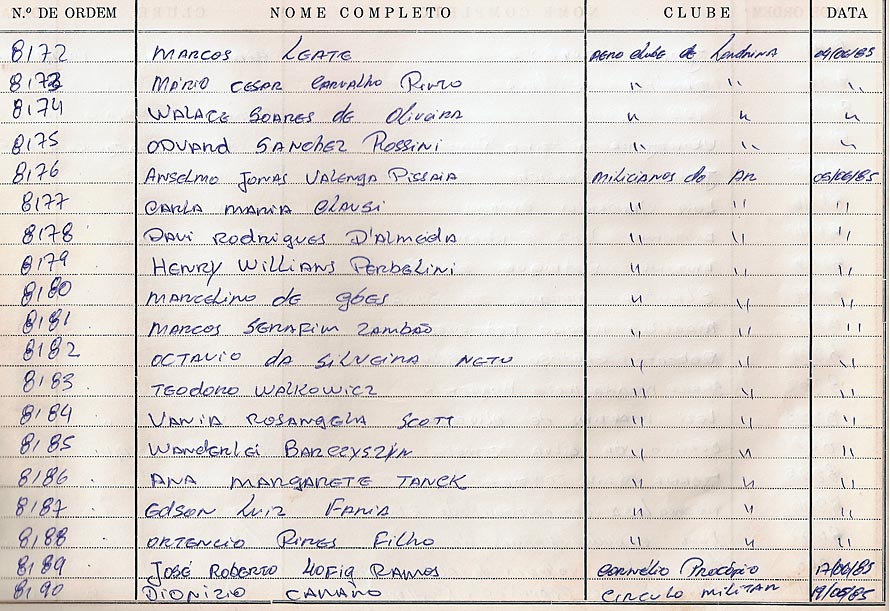 N.º DE ORDEM NOME COMPLETO CLUBE DATA
8172 MARCOS LEATE AERO CLUBE de Londrina 04/06/85
8173 MÁRIO CESAR CARVALHO PINTO " " "
8174 WALACE SOARES DE OLIVEIRA " " "
8175 ODVARD SANCHEZ ROSSINI " " "
8176 ANSELMO JONAS VALENGA PISSAIA MILICIANOS do AR 05/06/85
8177 CARLA MARIA CLAUSI " " "
8178 DAVI RODRIGUES D'ALMEIDA " " "
8179 HENRY WILLIANS PERBELINI " " "
8180 MARCELINO DE GÓES " " "
8181 MARCOS SERAFIM ZAMBÃO " " "
8182 OCTAVIO DA SILVEIRA NETO " " "
8183 TEODORO WALKOWICZ " " "
8184 VANIA ROSANGELA SCOTT " " "
8185 WANDERLEI BARCZYSZYN " " "
8186 ANA MARGARETE TANCK " " "
8187 EDSON LUIZ FARIA " " "
8188 ORTENCIO PIRES FILHO " " "
8189 JOSÉ ROBERTO RAMOS CORNÉLIO PROCÓPIO
8190 DIONIZIO CIRCULO MILITAR